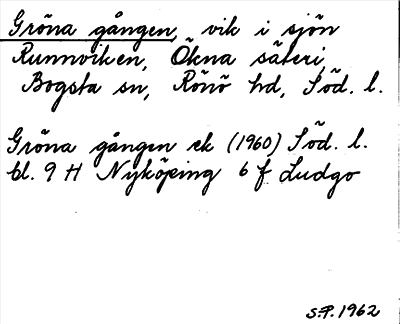 Gröna gången, vik i sjön
Runnviken, Ökna säteri,
Bogsta sn, Rönö hd, Söd. l.
Gröna gången ek (1960) Söd. l.
bl. 9 H Nyköping 6 f Ludgo
S.P. 1962